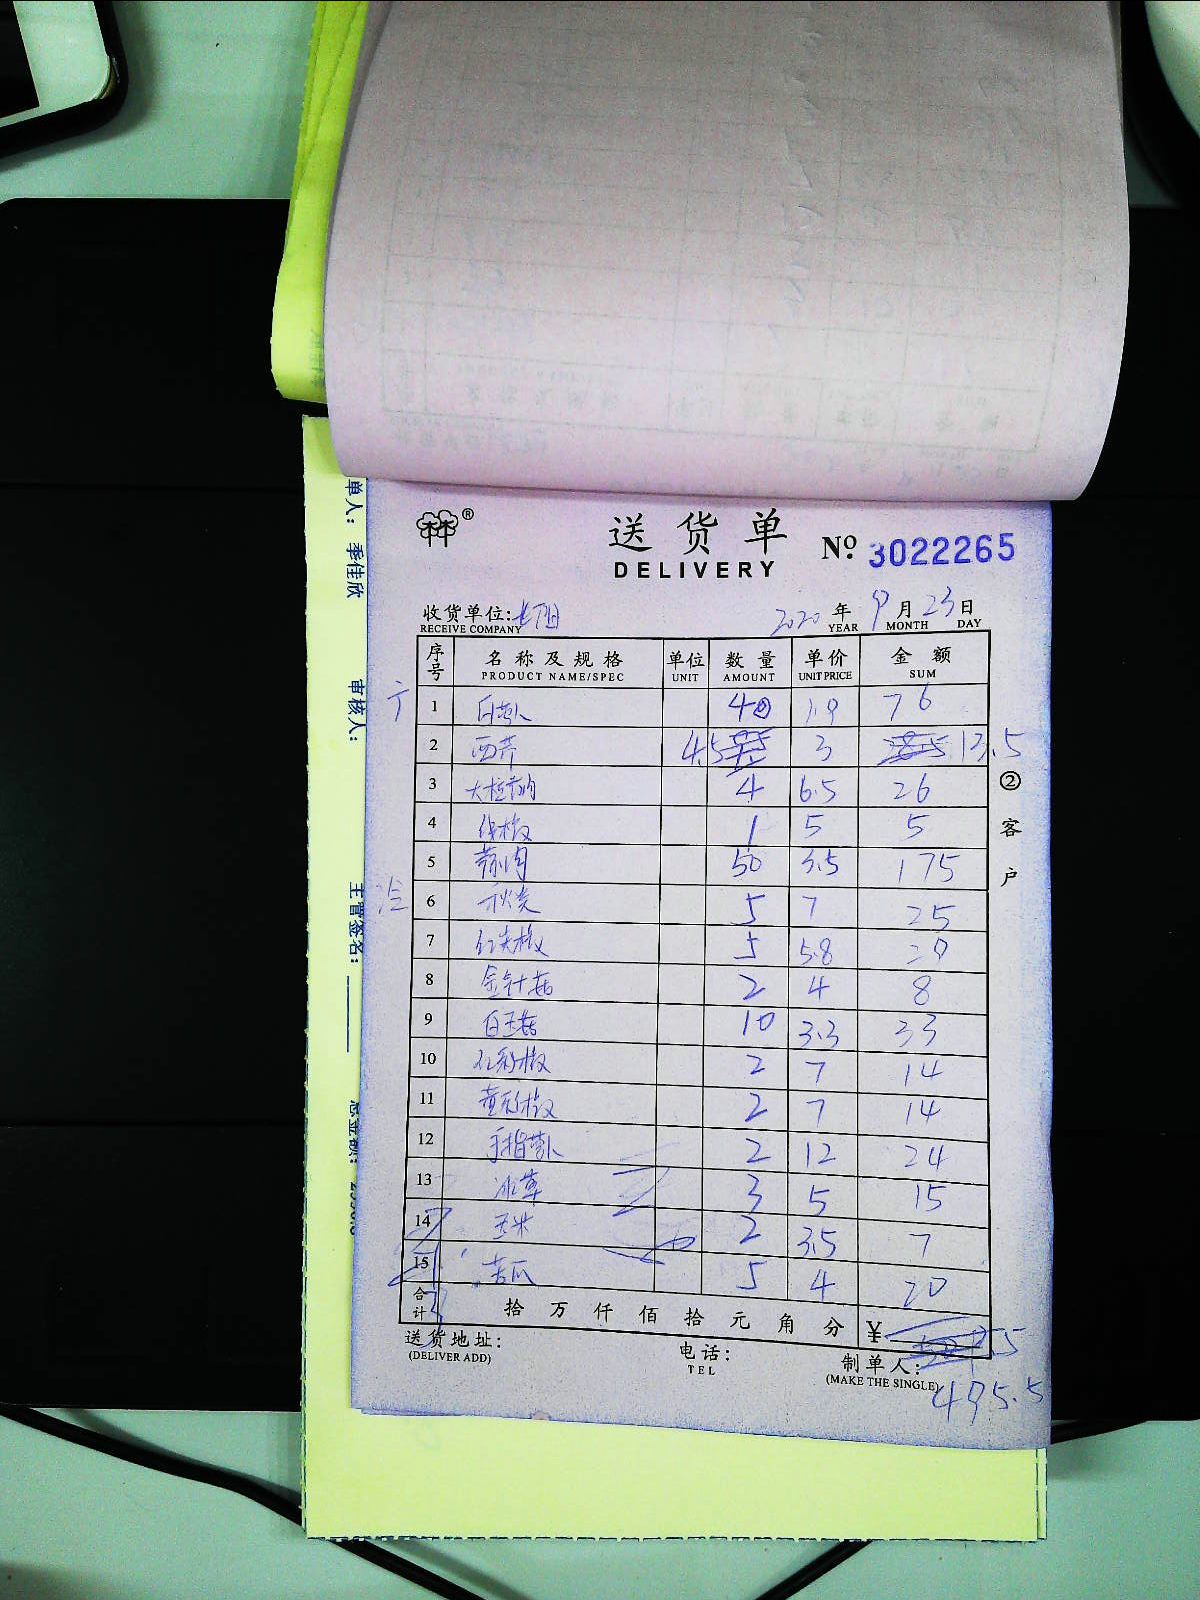 单人: 季佳欣
审核人:
主管签名:
总金额:
®
送货单
DELIVERY
№ 3022265
收货单位:
RECEIVE COMPANY
2020 年 9 月 23 日
YEAR MONTH DAY
序号 名称及规格 单位 数量 单价 金额
PRODUCT NAME/SPEC UNIT AMOUNT UNIT PRICE SUM
1 白萝卜 40 1.9 76
2 西芹 4.5 3 13.5
3 4 6.5 26
4 线椒 1 5 5
5 50 3.5 175
6 秋葵 5 7 25
7 红尖椒 5 5.8 29
8 金针菇 2 4 8
9 白玉菇 10 3.3 33
10 红彩椒 2 7 14
11 黄彩椒 2 7 14
12 手指萝卜 2 12 24
13 冰草 3 5 15
14 玉米 2 3.5 7
15 苦瓜 5 4 20
合计 拾万仟佰拾元角分 ¥
495.5
送货地址:
(DELIVER ADD)
电话:
TEL
制单人:
(MAKE THE SINGLE)
②客户